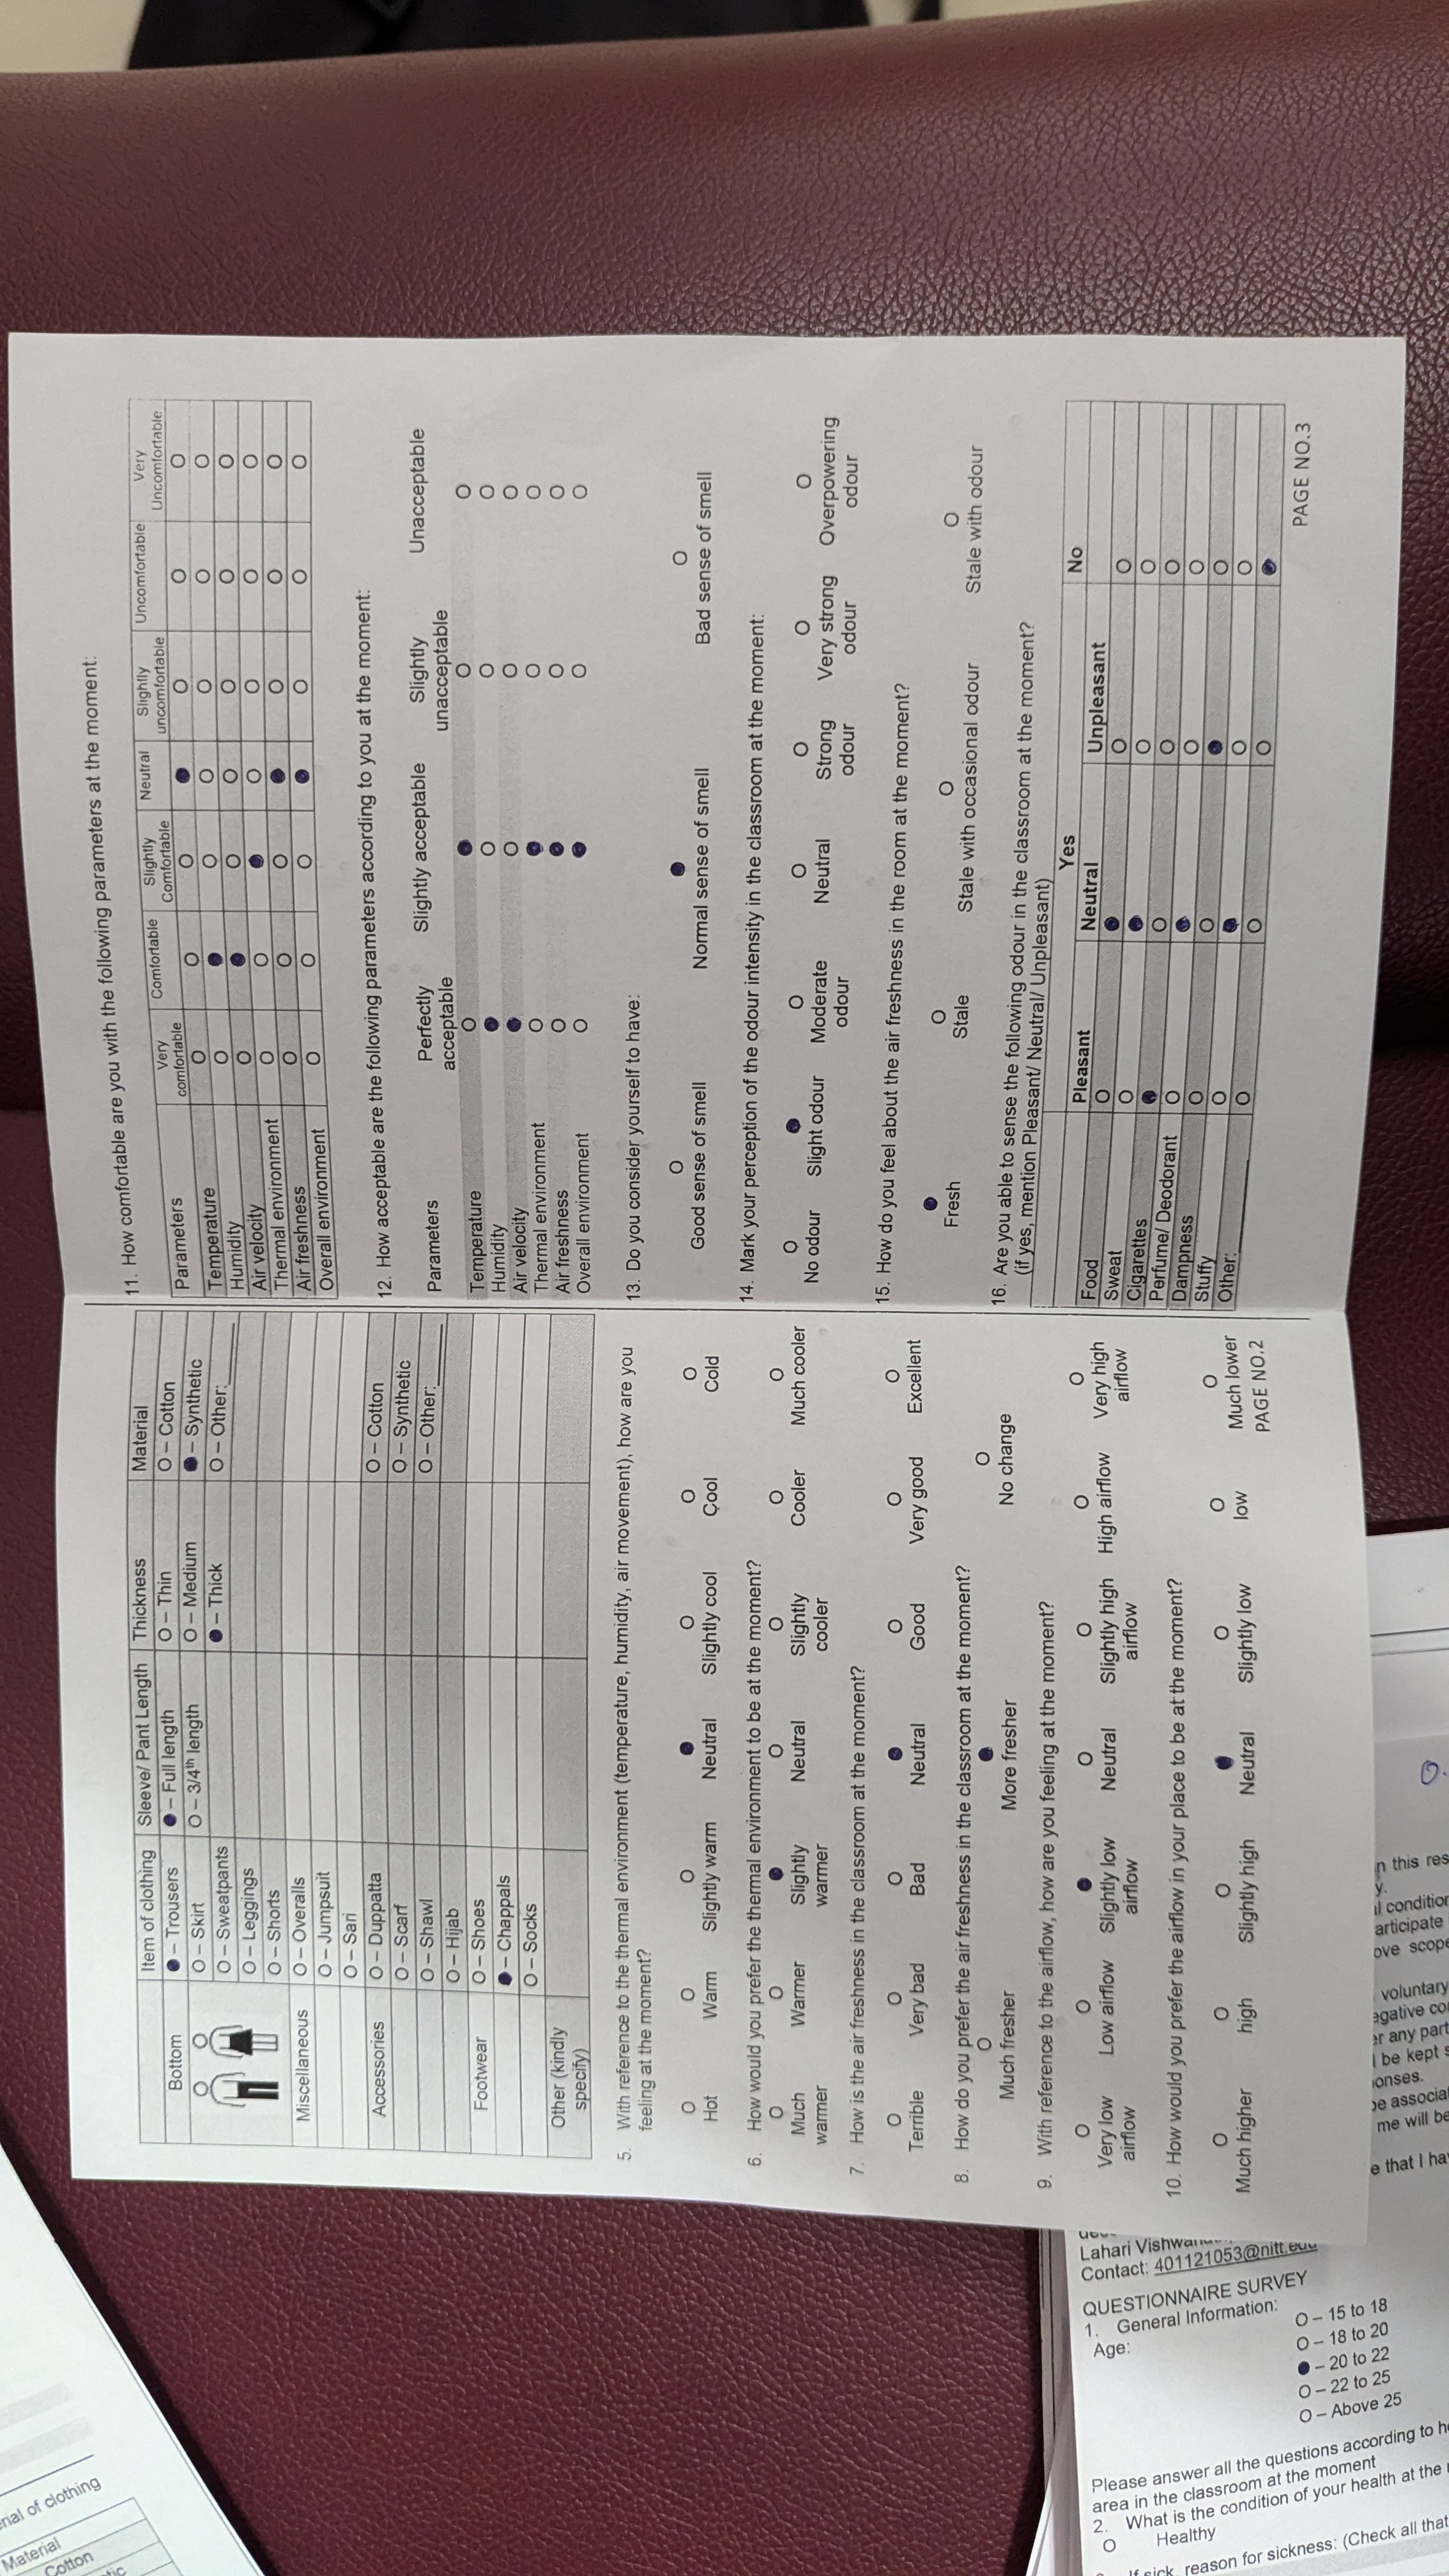 Material
Cotton
rial of clothing
Item of clothing Sleeve/ Pant Length Thickness Material
Bottom ● – Trousers ● – Full length O – Thin O – Cotton
O – Skirt O – 3/4th length O – Medium ● – Synthetic
O – Sweatpants ● – Thick O – Other:______
O – Leggings
O – Shorts
Miscellaneous O – Overalls
O – Jumpsuit
O – Sari
Accessories O – Duppatta O – Cotton
O – Scarf O – Synthetic
O – Shawl O – Other:______
O – Hijab
Footwear O – Shoes
● – Chappals
O – Socks
Other (kindly
specify)
5. With reference to the thermal environment (temperature, humidity, air movement), how are you
feeling at the moment?
O O O ● O O O
Hot Warm Slightly warm Neutral Slightly cool Cool Cold
6. How would you prefer the thermal environment to be at the moment?
O O ● O O O O
Much Warmer Slightly Neutral Slightly Cooler Much cooler
warmer warmer cooler
7. How is the air freshness in the classroom at the moment?
O O O ● O O O
Terrible Very bad Bad Neutral Good Very good Excellent
8. How do you prefer the air freshness in the classroom at the moment?
O ● O
Much fresher More fresher No change
9. With reference to the airflow, how are you feeling at the moment?
O O ● O O O O
Very low Low airflow Slightly low Neutral Slightly high High airflow Very high
airflow airflow airflow airflow
10. How would you prefer the airflow in your place to be at the moment?
O O O ● O O O
Much higher high Slightly high Neutral Slightly low low Much lower
PAGE NO.2
11. How comfortable are you with the following parameters at the moment:
Parameters Very Comfortable Slightly Neutral Slightlly Uncomfortable Very
comfortable Comfortable uncomfortable Uncomfortable
Temperature O O O ● O O O
Humidity O ● O O O O O
Air velocity O ● O O O O O
Thermal environment O O ● O O O O
Air freshness O O O ● O O O
Overall environment O O O ● O O O
12. How acceptable are the following parameters according to you at the moment:
Parameters Perfectly Slightly acceptable Slightly Unacceptable
acceptable unacceptable
Temperature O ● O O
Humidity ● O O O
Air velocity ● O O O
Thermal environment O ● O O
Air freshness O ● O O
Overall environment O ● O O
13. Do you consider yourself to have:
O ● O
Good sense of smell Normal sense of smell Bad sense of smell
14. Mark your perception of the odour intensity in the classroom at the moment:
O ● O O O O O
No odour Slight odour Moderate Neutral Strong Very strong Overpowering
odour odour odour odour
15. How do you feel about the air freshness in the room at the moment?
● O O O
Fresh Stale Stale with occasional odour Stale with odour
16. Are you able to sense the following odour in the classroom at the moment?
(if yes, mention Pleasant/ Neutral/ Unpleasant)
Yes No
Pleasant Neutral Unpleasant
Food O ● O O
Sweat O ● O O
Cigarettes ● O O O
Perfume/ Deodorant O ● O O
Dampness O O ● O
Stuffy O ● O O
Other:______ O O O ●
PAGE NO.3
Lahari
Contact: 401121053@nitt.edu
QUESTIONNAIRE SURVEY
1. General Information:
Age: O – 15 to 18
O – 18 to 20
● – 20 to 22
O – 22 to 25
O – Above 25
Please answer all the questions according to
area in the classroom at the moment
2. What is the condition of your health at the
O Healthy
If sick, reason for sickness: (Check all that
n this res
y.
l condition
articipate
ove scope
voluntary
egative co
er any part
l be kept
onses.
be associa
me will be
e that I ha